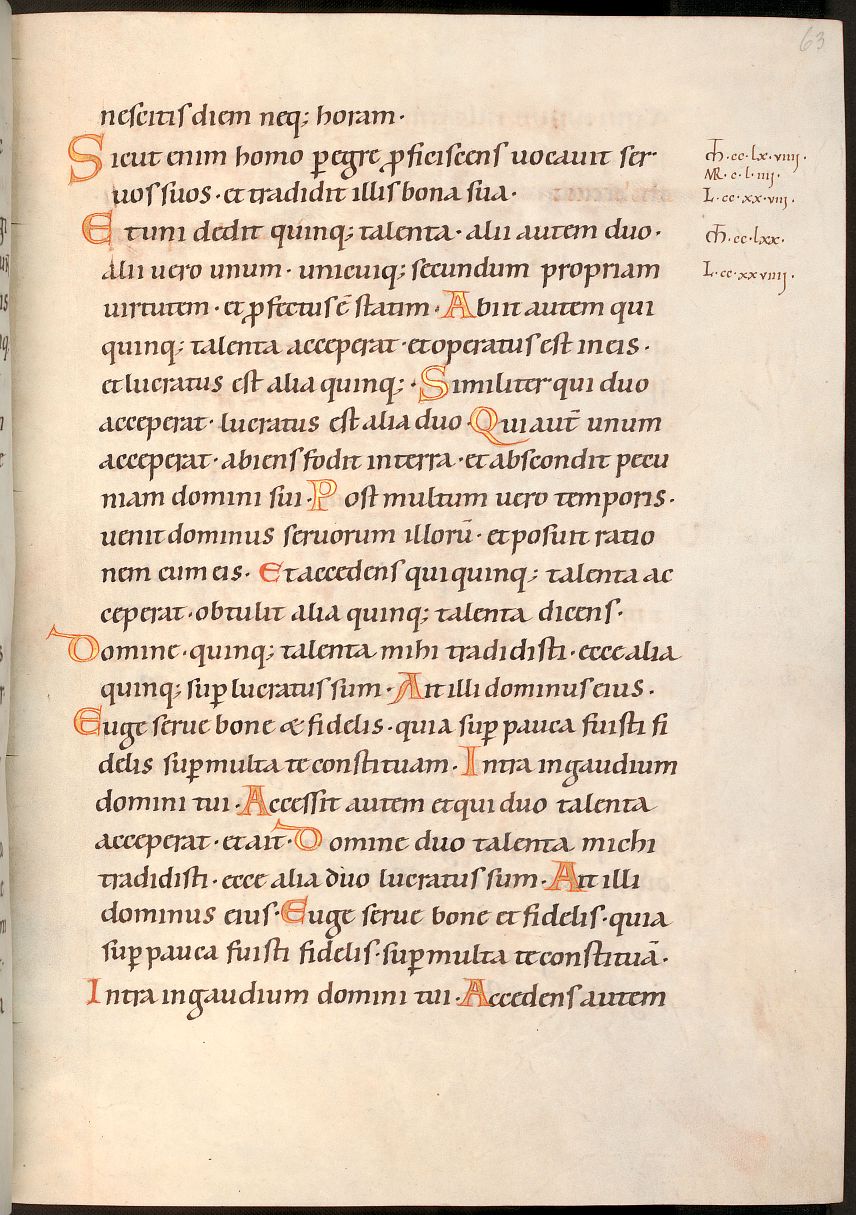 63
nescitis diem neq; horam·
Sicut enim homo p̲egre p̲ficiscens uocauit ser
uos suos· et tradidit illis bona sua·
Et uni dedit quinq; talenta· alii autem duo·
alii uero unum· unicuiq; secundum propriam
uirtutem· et p̲fectus ē statim· Abiit autem qui
quinq; talenta acceperat· et operatus est in eis·
et lucratus est alia quinq;· Similiter qui duo
acceperat· lucratus est alia duo· Qui aut̄ unum
acceperat· abiens fodit in terra· et abscondit pecu
niam domini sui· Post multum uero temporis·
uenit dominus seruorum illorū· et posuit ratio
nem cum eis· Et accedens qui quinq; talenta ac
ceperat· obtulit alia quinq; talenta dicens·
Domine· quinq; talenta mihi tradidisti· ecce alia
quinq; sup̲ lucratus sum· Ait illi dominus eius·
Euge serue bone & fidelis· quia sup̲ pauca fuisti fi
delis sup̲ multa te constituam· Intra in gaudium
domini tui· Accessit autem et qui duo talenta
acceperat· et ait· Domine duo talenta michi
tradidisti· ecce alia duo lucratus sum· Ait illi
dominus eius· Euge serue bone et fidelis· quia
sup̲ pauca fuisti fidelis· sup̲ multa te constituā·
Intra in gaudium domini tui· Accedens autem
m̄·cc·lx·viiij·
MR·c·l·iiij·
L·cc·xx·viij·
m̄·cc·lxx·
L·cc·xxviiij·